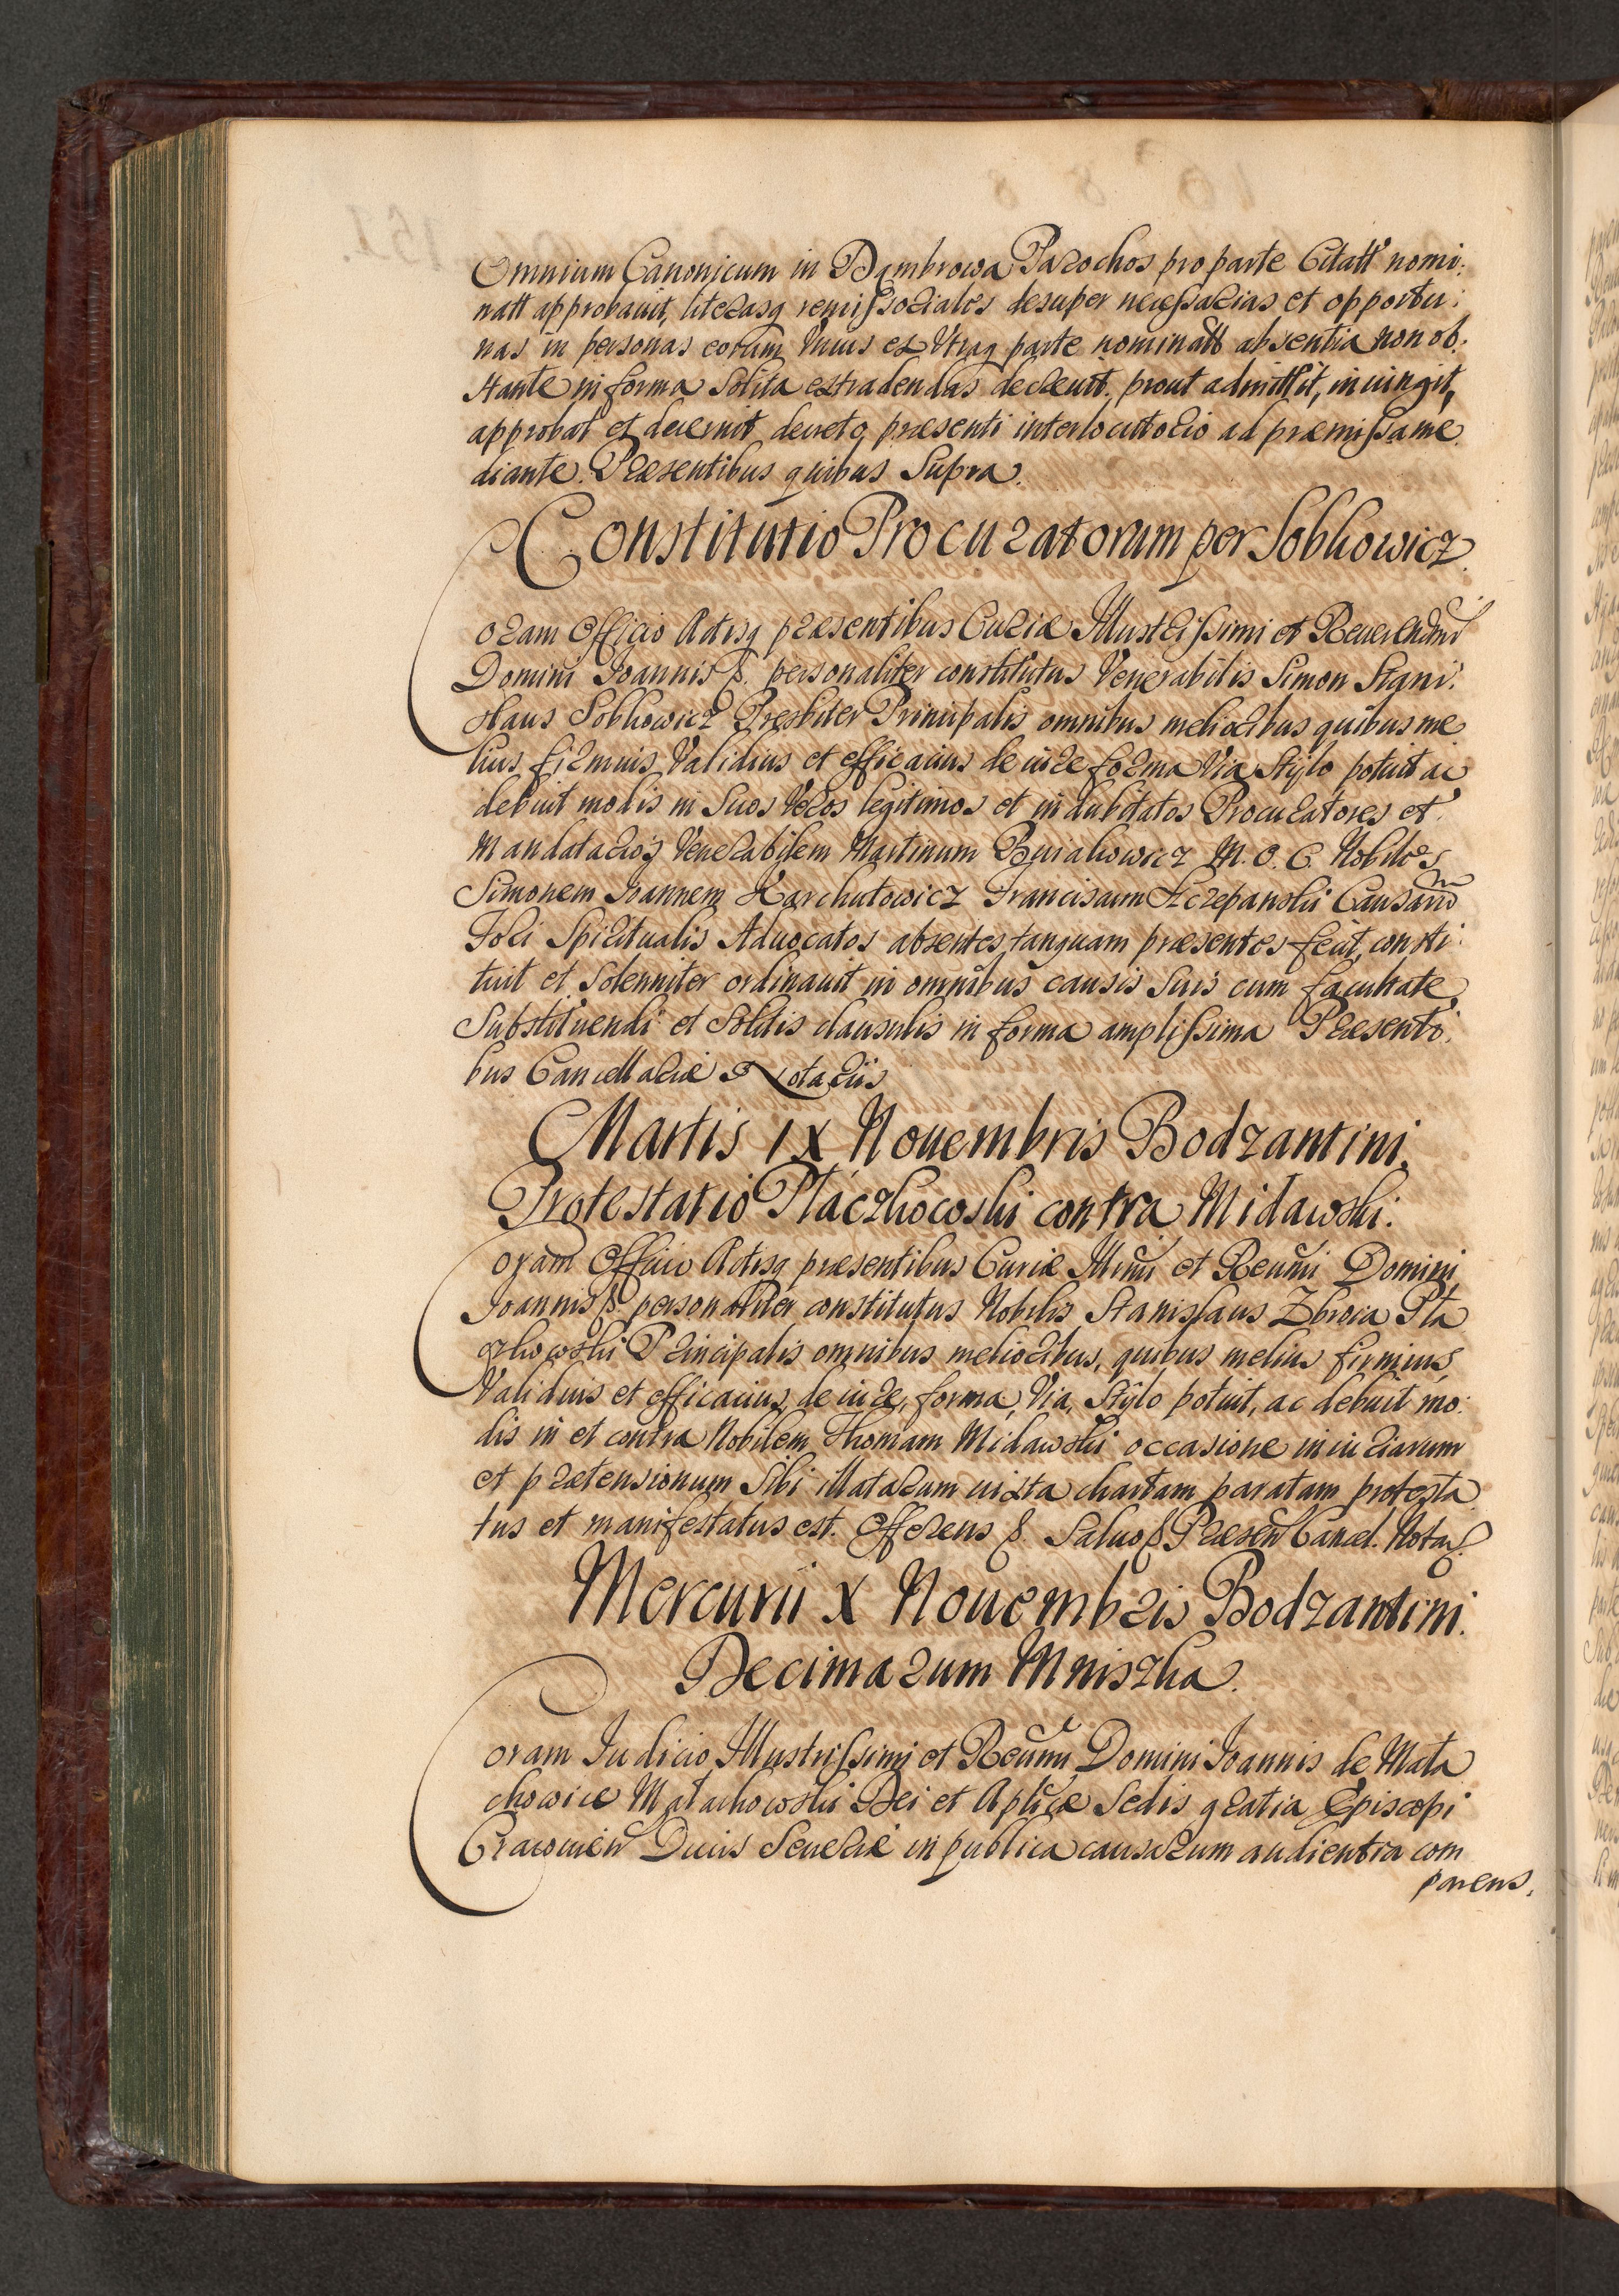 Omnium Canonicum in Dąmbrowa Parochos pro parte Citatt nomi:
natt approbauit, literasq remissoriales desuper necessarias et opportu:
nas in personas eorum Vnius ex Vtraq parte nominatt absentia non ob:
stante in forma Solita extradendas decreuit. prout admittit, iniungit,
approbat et decernit decretq praesenti interlocutorio ad praemissa me:
diante. Praesentibus quibus Supra.
Constitutio Procuratorum per Sobkowicz.
Coram Officio Actisq praesentibus Curiae Illustrissimi et Reuerendmi
Domini Joannis personaliter constitutus Venerabilis Simon Stani:
slaus Sobkowicz Presbiter Principalis omnibus melioribus quibus me
lius firmius Validius et efficacius de iure forma Via Stylo potuit ac
debuit modis in Suos Veros legitimos et indubitatos Procuratores et
Mandatarios Venerabilem Martinum M. O. C. Nobiles
Simonem Joannem Karchutowicz Franciscum Sczepanski Causarum
Fori Spiritualis Aduocatos absentes tanquam praesentes fecit, consti:
tuit et Solenniter ordinauit in omnibus causis Suis cum facultate
Substituendi et Solitis clausulis in forma amplissima Praesenti:
bus Cancellariae Notariis
Martis IX Nouembris Bodzantini.
Protestatio Płaczkowski contra Midawski.
Coram Officio Actisq praesentibus Curiae Illmi et Reumi Domini
Joannis personaliter constitutus Nobilis Stanislaus Zbroia Pła
czkowski Principalis omnibus melioribus, quibus melius firmius,
Validius et efficacius, de iure, forma, Via, Stylo potuit, ac debuit mo:
dis in et contra Nobilem Thomam Midawski occasione iniuriarum
et praetensionum Sibi illatarum iuxta chartam paratam protesta
tus et manifestatus est. Offerens Saluo Praesen Cancel. Notar.
Mercurii X Nouembris Bodzantini.
Decimarum Mniszka.
Coram Judicio Illustrissimi et Reumi Domini Joannis de Mała
chowice Małachowski Dei et Aplicae Sedis gratia Episcopi
Cracouien Ducis Seueriae in publica causarum audientia com
parens.